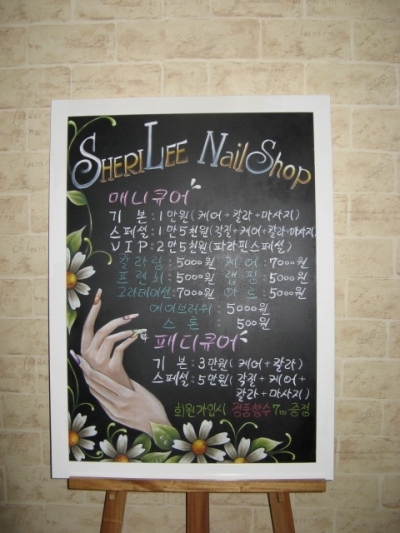 SHERILEE NailShop
매니큐어
기 본 : 1만원 (케어+칼라+마사지)
스페셜 : 1만5천원 (각질+케어+칼라+마사지)
V I P : 2만5천원 (파라핀스페셜)
칼라링 : 5000원 케 어 : 7000원
프렌치 : 5000원 랩 핑 : 5000원
그라데이션 : 7000원 아 트 : 5000원
에어브러쉬 : 5000원
스톤 : 500원
패디큐어
기 본 : 3만원 (케어+칼라)
스페셜 : 5만원 (각질+케어+
칼라+마사지)
회원가입시 정품향수 7ml 증정